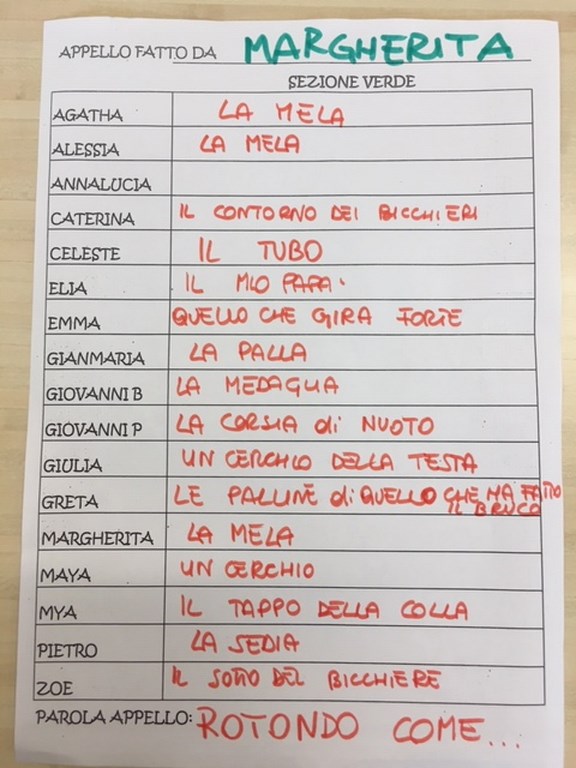 APPELLO FATTO DA MARGHERITA
SEZIONE VERDE
AGATHA LA MELA
ALESSIA LA MELA
ANNALUCIA
CATERINA IL CONTORNO DEI BICCHIERI
CELESTE IL TUBO
ELIA IL MIO PAPA'
EMMA QUELLO CHE GIRA FORTE
GIANMARIA LA PALLA
GIOVANNI B LA MEDAGLIA
GIOVANNI P LA CORSIA di NUOTO
GIULIA UN CERCHIO DELLA TESTA
GRETA LE PALLINE di QUELLO CHE HA FATTO
IL BRUCO
MARGHERITA LA MELA
MAYA UN CERCHIO
MYA IL TAPPO DELLA COLLA
PIETRO LA SEDIA
ZOE IL SOTTO DEL BICCHIERE
PAROLA APPELLO: ROTONDO COME...